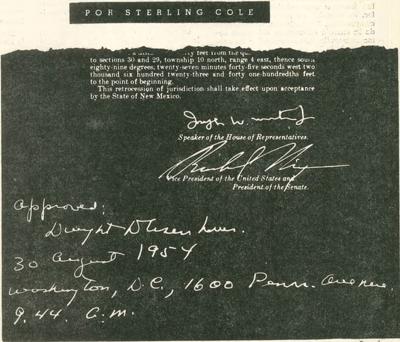 POR STERLING COLE
feet from the
to sections 30 and 29, township 10 north, range 4 east, thence south
eighty-nine degrees, twenty-seven minutes forty-five seconds west two
thousand six hundred twenty-three and forty one-hundredths feet
to the point of beginning.
This retrocession of jurisdiction shall take effect upon acceptance
by the State of New Mexico.
Speaker of the House of Representatives.
Vice President of the United States and
President of the Senate.
Approved:
Dwight D Eisenhower.
30 August 1954
Washington, D.C., 1600 Penn. Avenue.
9.44. A.M.